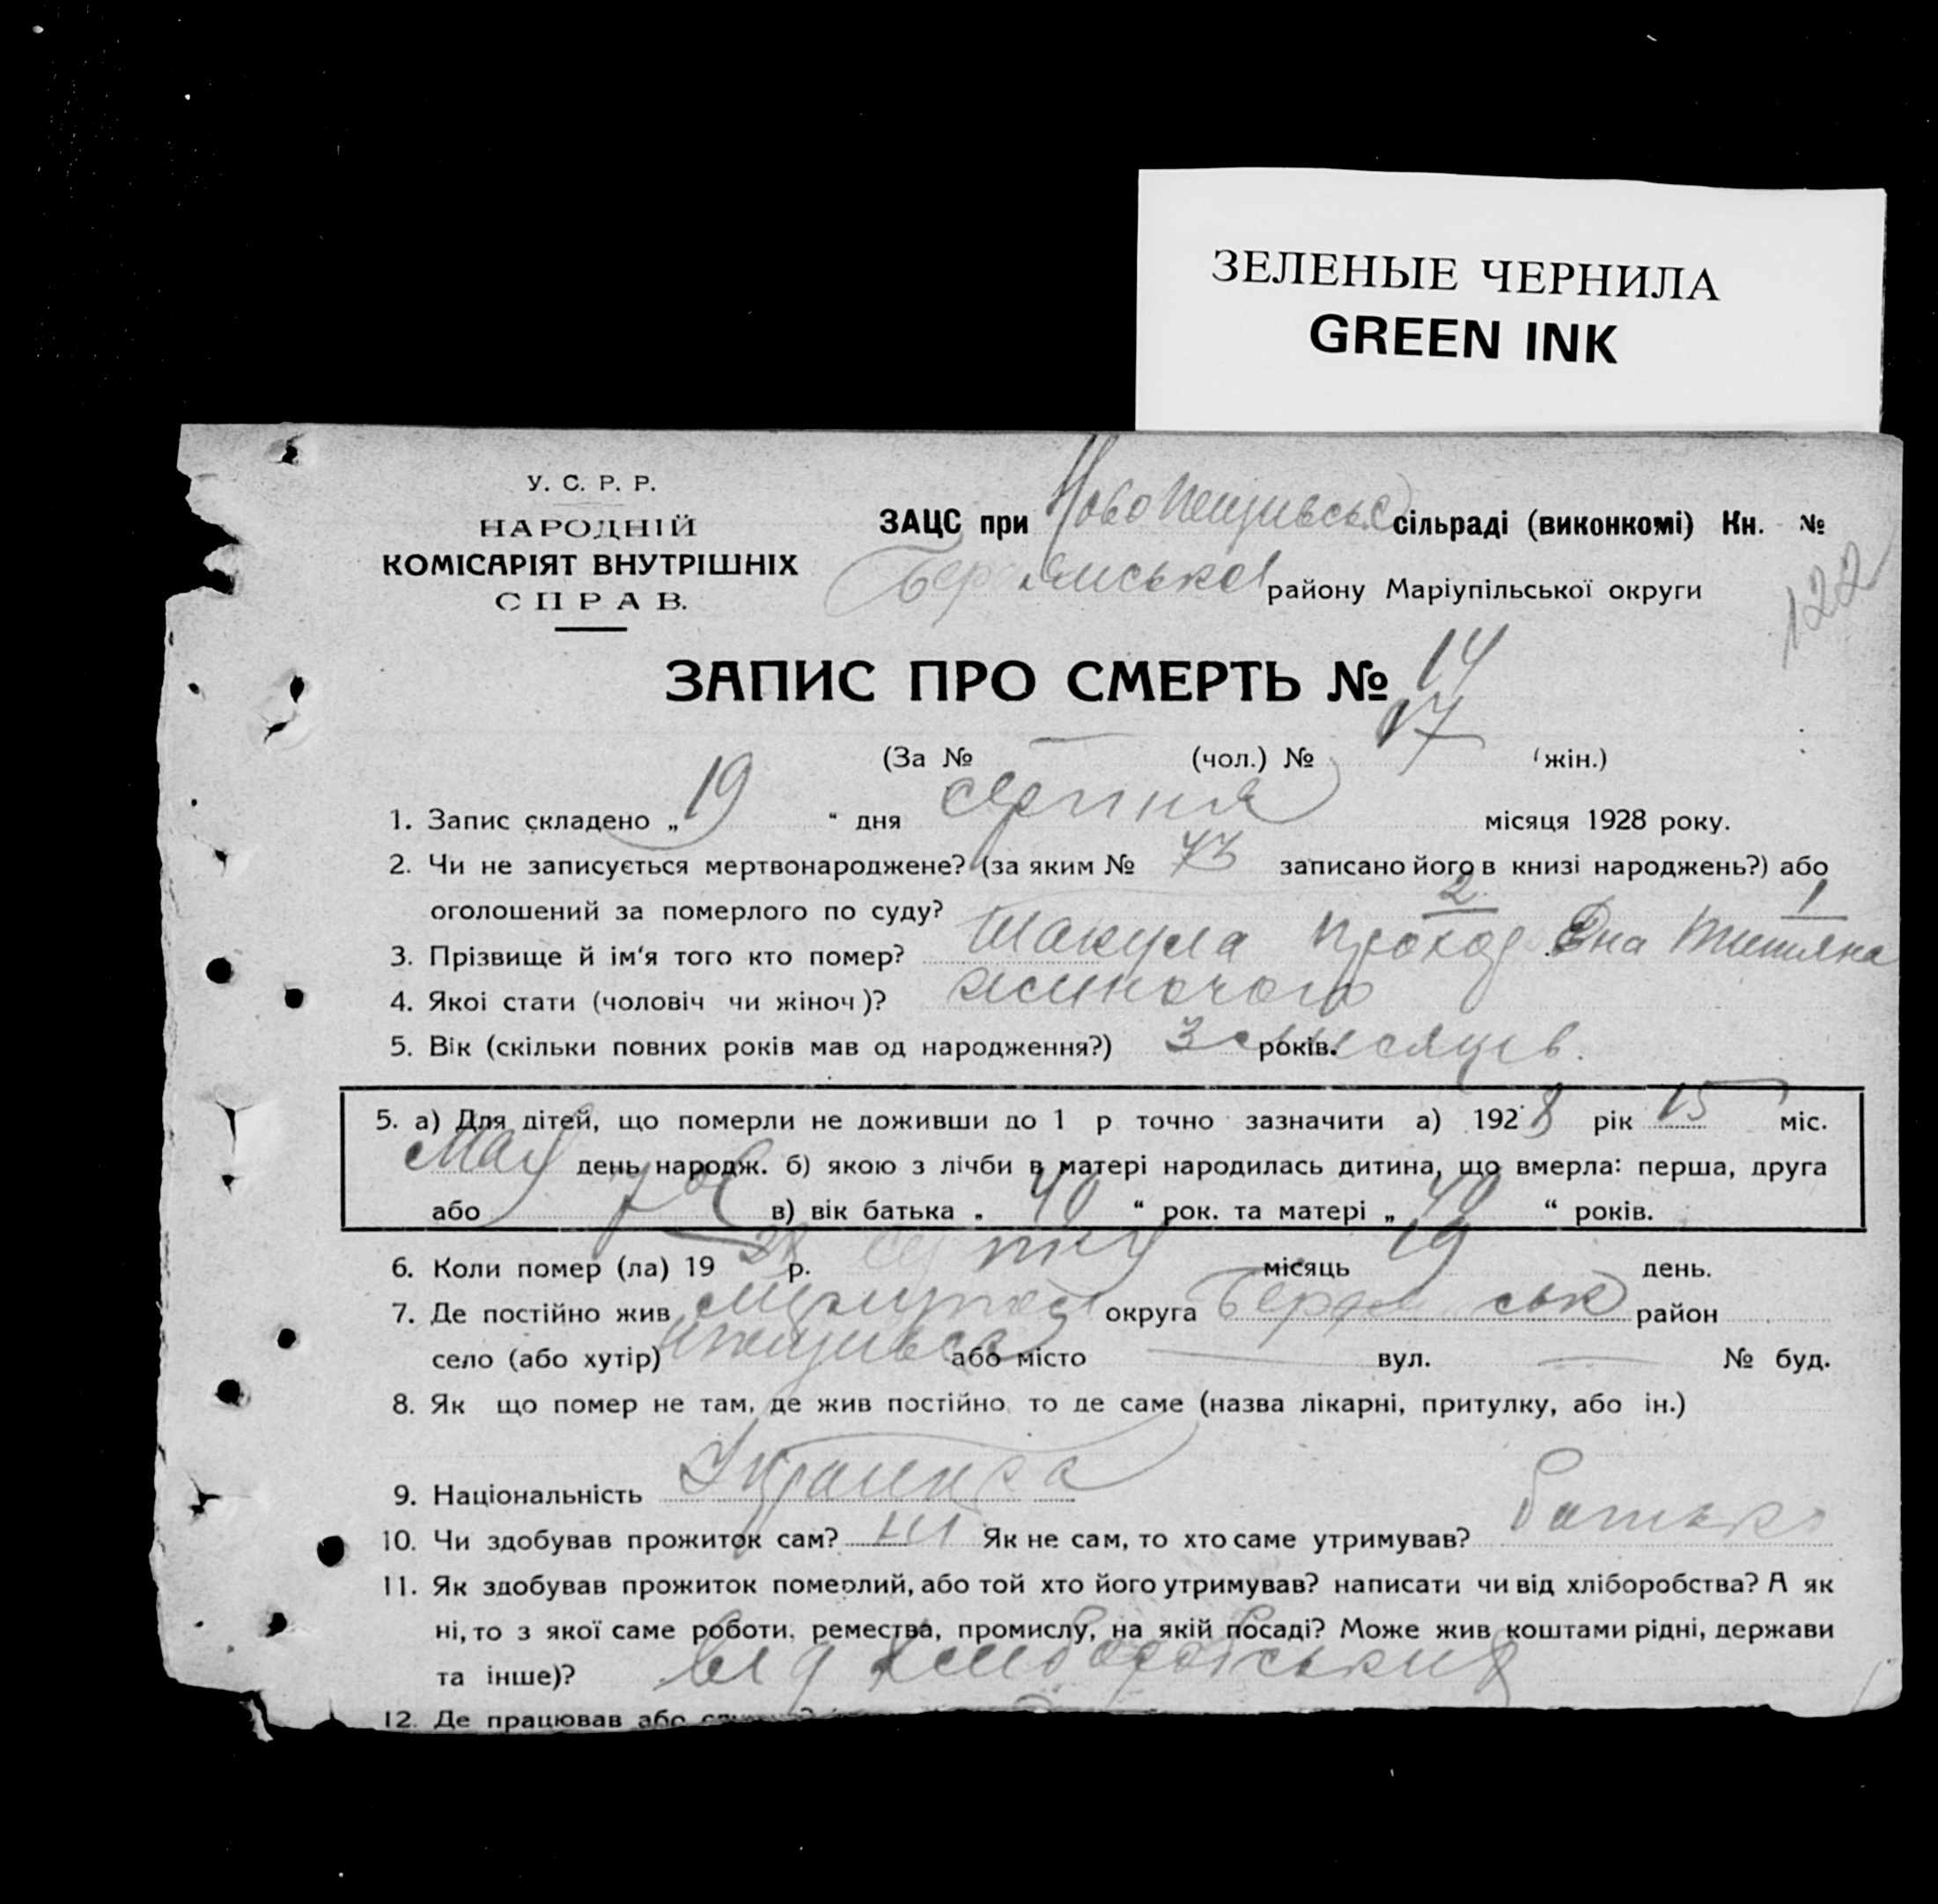 ЗЕЛЕНЫЕ ЧЕРНИЛА
GREEN INK
У. С. Р. Р.
НАРОДНІЙ
КОМІСАРІЯТ ВНУТРІШНІХ
СПРАВ.
ЗАЦС при сільраді (виконкомі) Кн. №
району Маріупільської округи
122
ЗАПИС ПРО СМЕРТЬ № 14
(За № — (чол.) № 17 (жін.)
1. Запис складено „ 19 “ дня серпня місяця 1928 року.
2. Чи не записується мертвонароджене? (за яким № 73 записано його в книзі народжень?) або
оголошений за померлого по суду?
2 1
3. Прізвище й ім'я того кто помер? Шакула
4. Якоі стати (чоловіч чи жіноч)? жиночого
5. Вік (скільки повних років мав од народження?) 3 років. місяців.
5. а) Для дітей, що померли не доживши до 1 р точно зазначити а) 1928 рік 15 міс.
Мая день народж. б) якою з лічби в матері народилась дитина, що вмерла: перша, друга
або в) вік батька „ 40 “ рок. та матері „ 40 “ років.
6. Коли помер (ла) 19 28 р. місяць 19 день.
7. Де постійно жив округа район
село (або хутір) або місто — вул. — № буд.
8. Як що помер не там, де жив постійно то де саме (назва лікарні, притулку, або ін.)
9. Національність Украинка
10. Чи здобував прожиток сам? ні Як не сам, то хто саме утримував? батько
11. Як здобував прожиток померлий, або той хто його утримував? написати чи від хліборобства? А як
ні, то з якої саме роботи, ремества, промислу, на якій посаді? Може жив коштами рідні, держави
та інше)? від
12. Де працював або